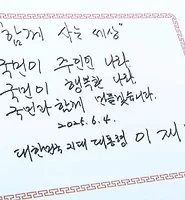 "함께 사는 세상"
국민이 주인인 나라,
국민이 행복한 나라,
국민과 함께 만들겠습니다.
2025. 6. 4.
대한민국 21대 대통령 이재